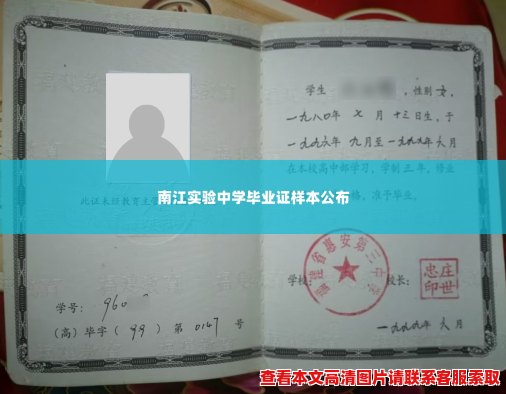 此证未经教育主
学号：960
（高）毕字（99）第 0147 号
学生 ，性别女，
一九八0年 七 月 十三日生，于
一九九六年 九月至一九九九年六月
在本校高中部学习，学制三年，修业
格，准予毕业。
南江实验中学毕业证样本公布
福建省惠安第三中学
学校： 校长：
庄世忠印
一九九九年 六 月
查看本文高清图片请联系客服索取